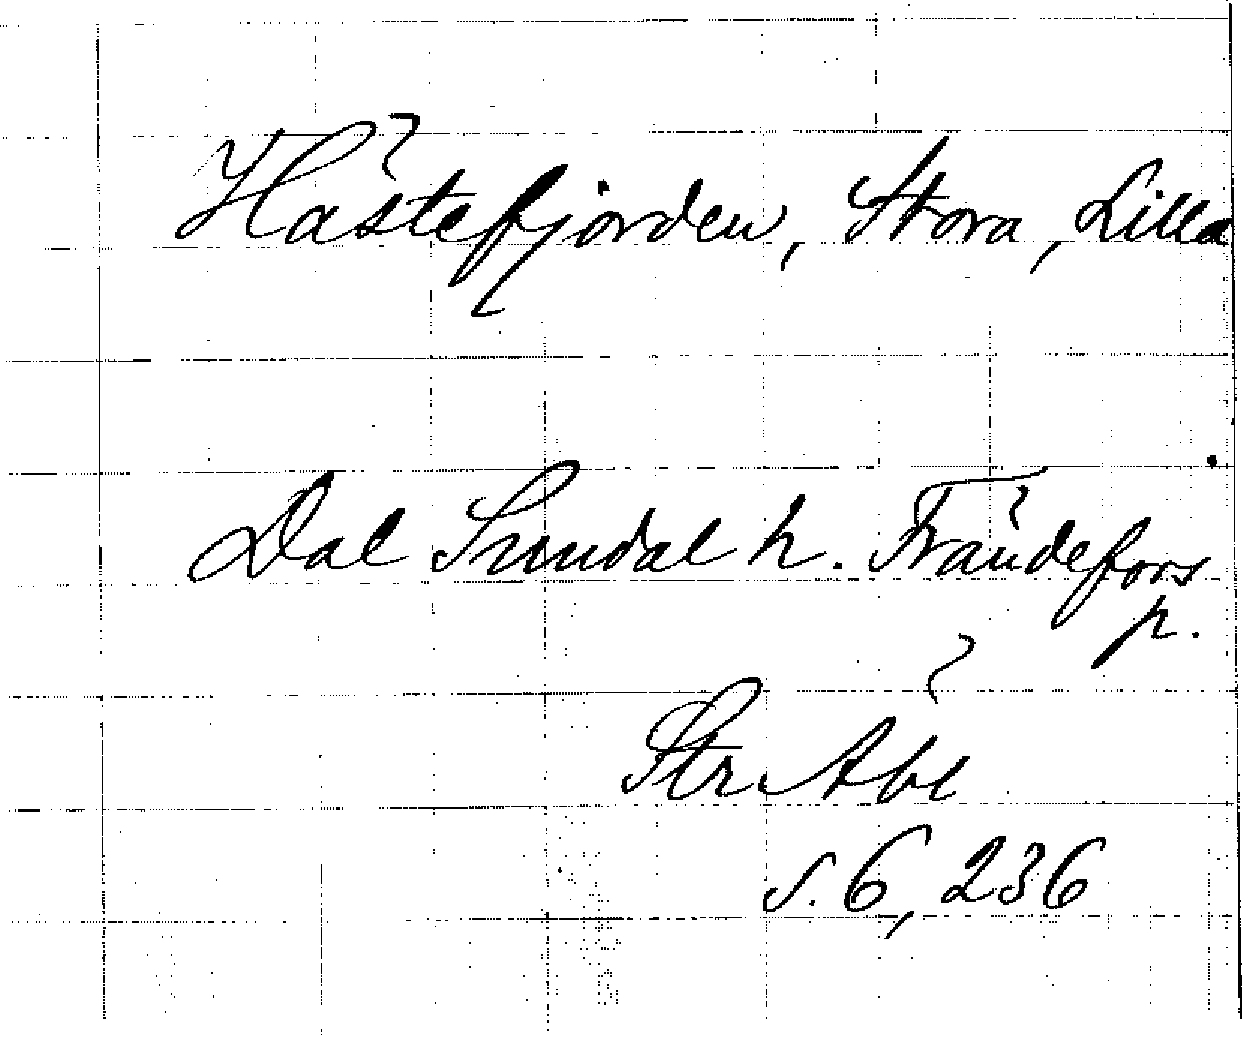 Hästefjorden, Stora, Lilla
Dal Sundal h. Frändefors
p.
Str Åbl
s. 6, 236